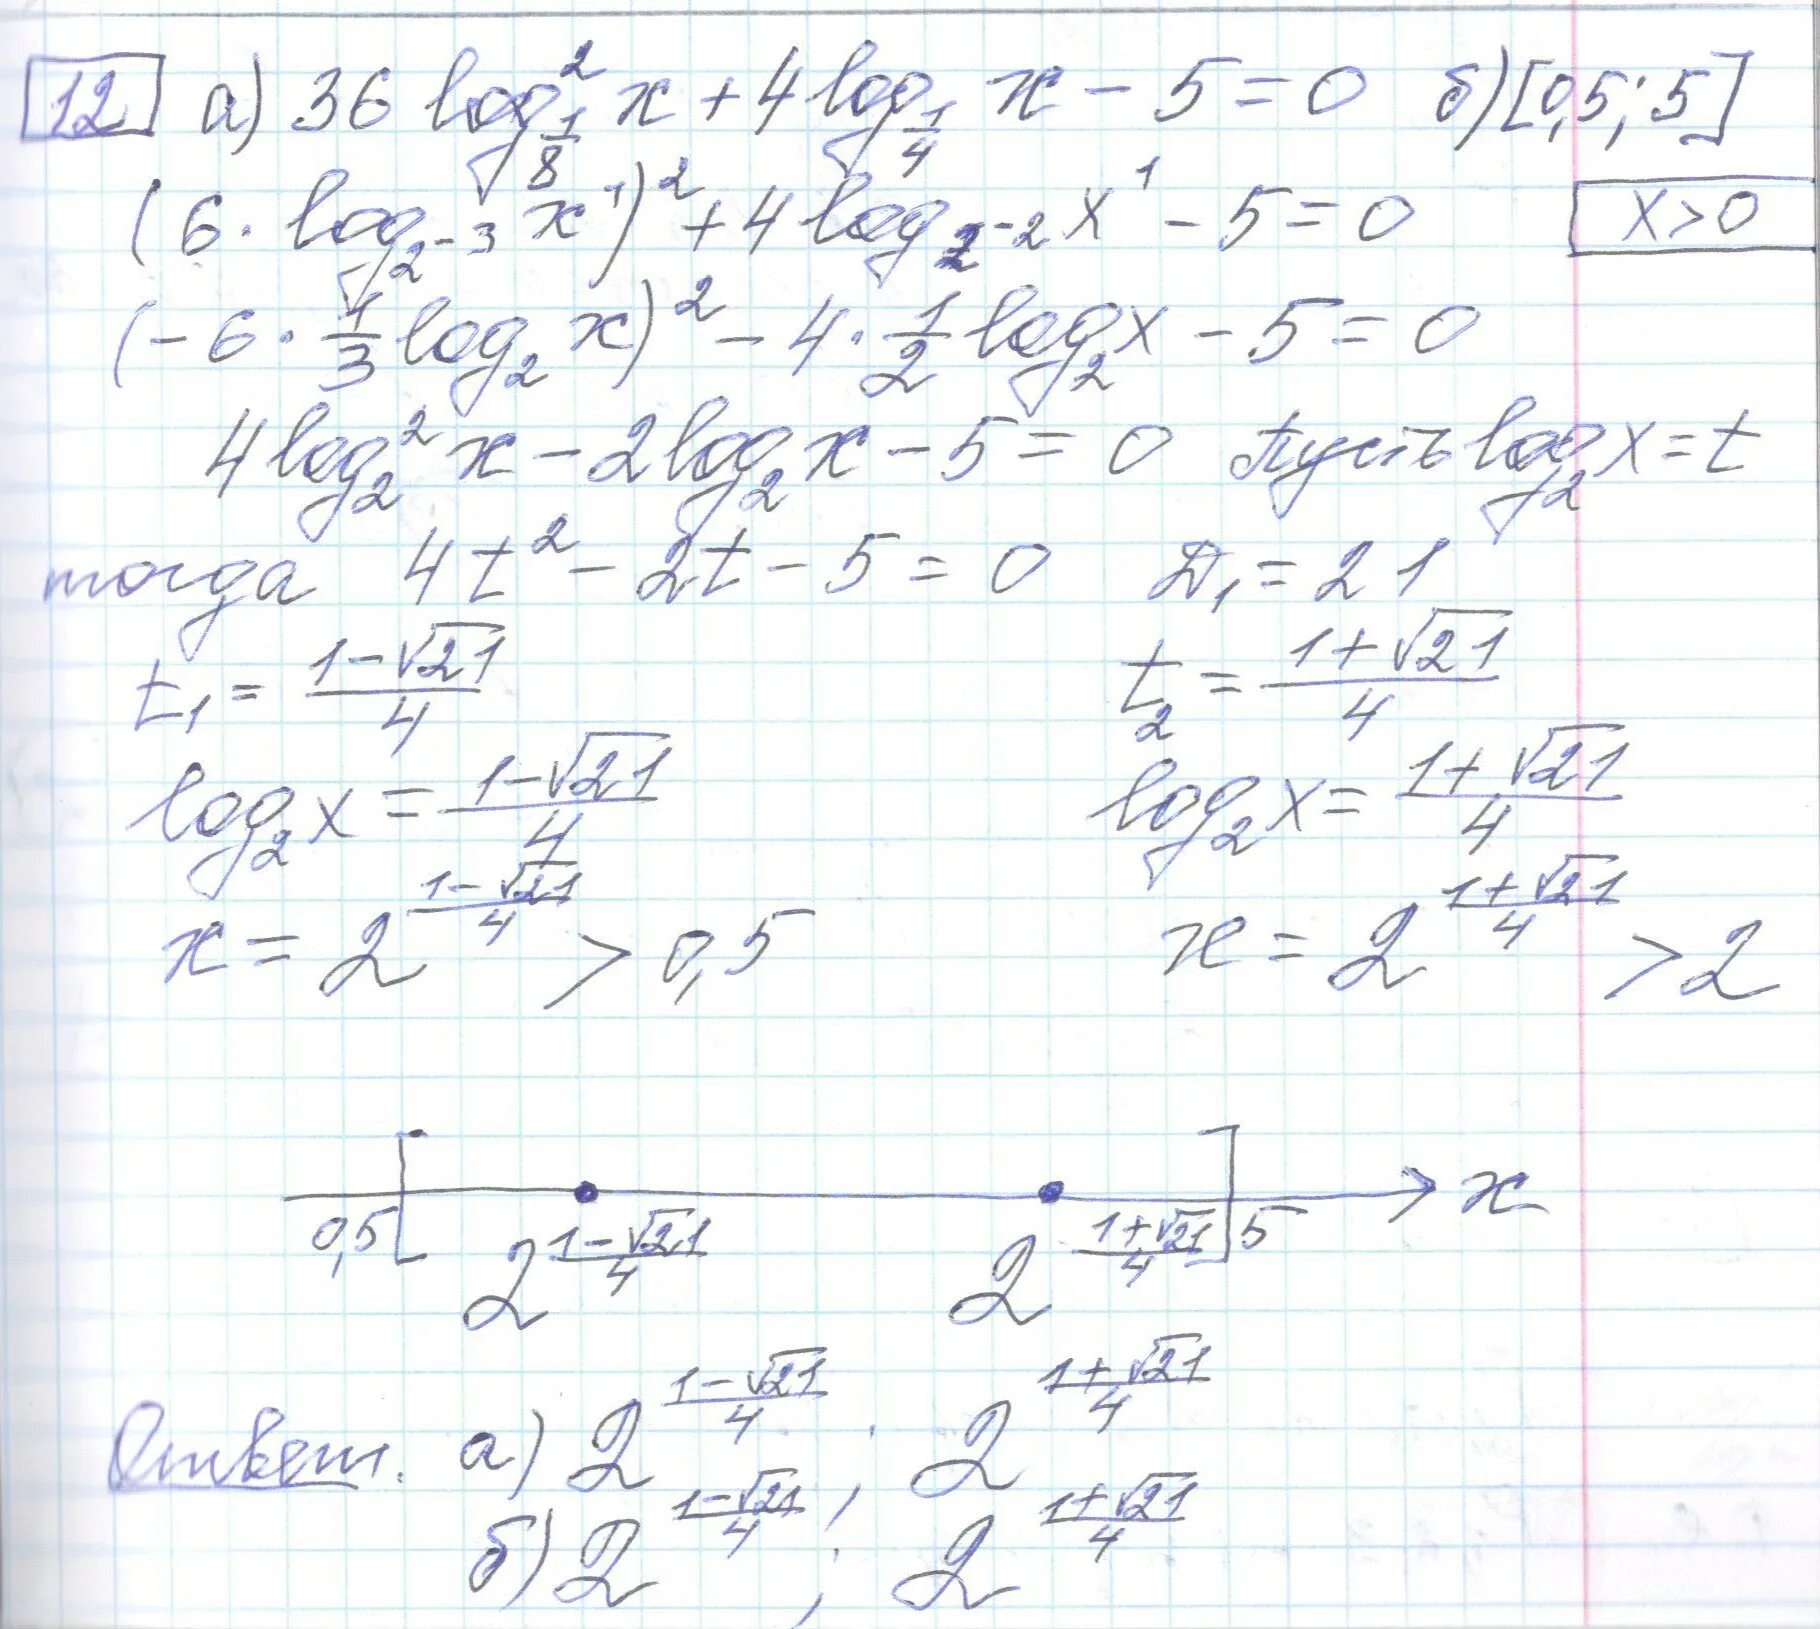 12 а) 36 log²_{1/8} x + 4 log_{1/4} x − 5 = 0 б) [0,5; 5]
(6 · log_{2^{−3}} x¹)² + 4 log_{2^{−2}} x¹ − 5 = 0 x > 0
(−6 · 1/3 log₂ x)² − 4 · 1/2 log₂ x − 5 = 0
4 log₂² x − 2 log₂ x − 5 = 0 Пусть log₂ x = t
тогда 4t² − 2t − 5 = 0 D₁ = 21
t₁ = (1−√21)/4 t₂ = (1+√21)/4
log₂ x = (1−√21)/4 log₂ x = (1+√21)/4
x = 2^{(1−√21)/4} > 0,5 x = 2^{(1+√21)/4} > 2
0,5 [ 2^{(1−√21)/4} 2^{(1+√21)/4} ] 5 x
Ответ. а) 2^{(1−√21)/4} ; 2^{(1+√21)/4}
б) 2^{(1−√21)/4} ; 2^{(1+√21)/4}